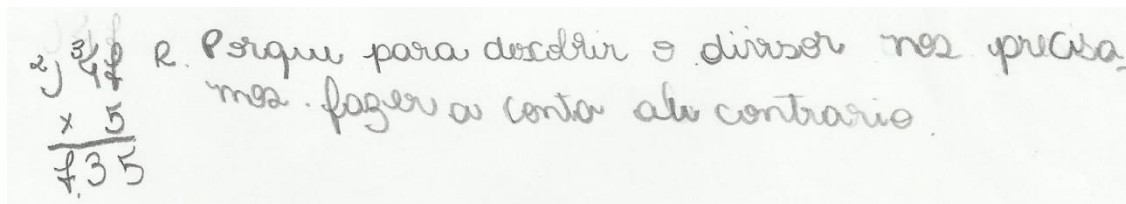 2 3
147 R. Porque para descobrir o divisor nos precisa-
mos fazer a conta contrario.
x 5
7.35